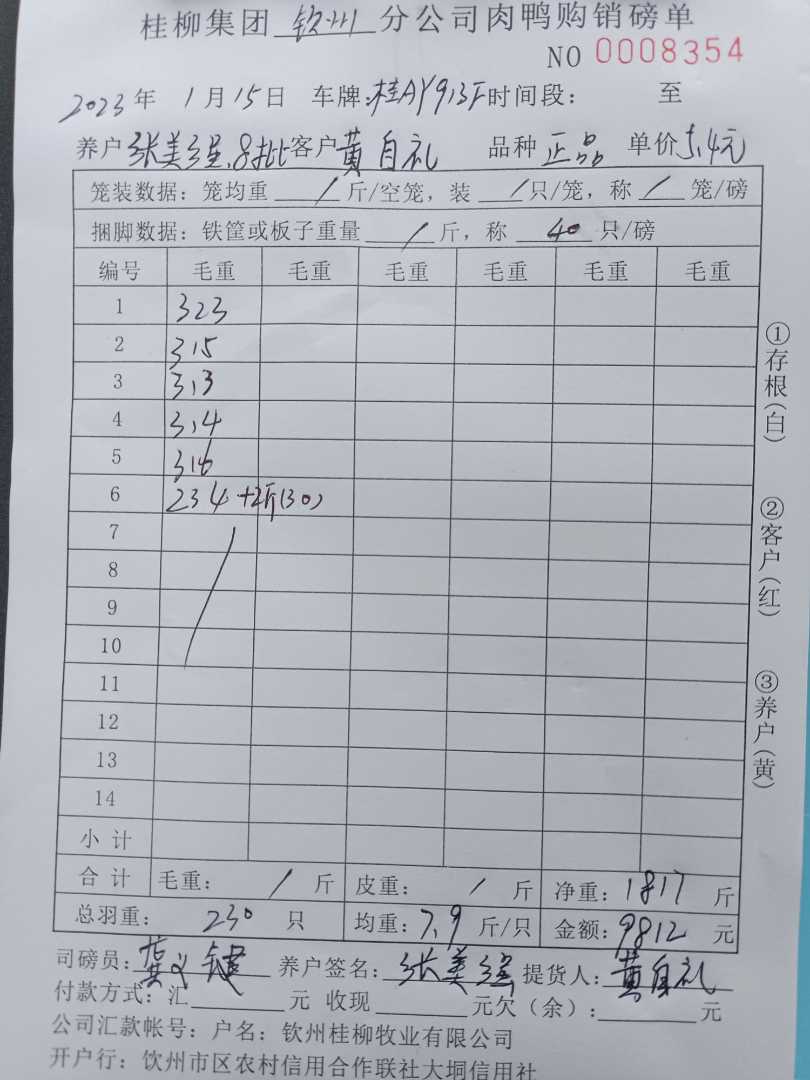 桂柳集团 钦州 分公司肉鸭购销磅单
NO 0008354
2023年 1月15日 车牌:桂AY913F时间段: 至
养户张美强8批客户黄自礼 品种 正品 单价5.4元
笼装数据:笼均重 / 斤/空笼,装 / 只/笼,称 / 笼/磅
捆脚数据:铁筐或板子重量 / 斤,称 40 只/磅
编号 毛重 毛重 毛重 毛重 毛重 毛重
1 323
2 315
3 313
4 314
5 316
6 234+2斤(30)
7
8
9
10
11
12
13
14
小计
合计 毛重: / 斤 皮重: / 斤 净重:1817 斤
总羽重: 230 只 均重:7.9 斤/只 金额:9812 元
司磅员:龚义键 养户签名:张美强 提货人:黄自礼
付款方式:汇 元 收现 元欠(余): 元
公司汇款帐号:户名:钦州桂柳牧业有限公司
开户行:饮州市区农村信用合作联社大垌信用社
①存根(白)
②客户(红)
③养户(黄)